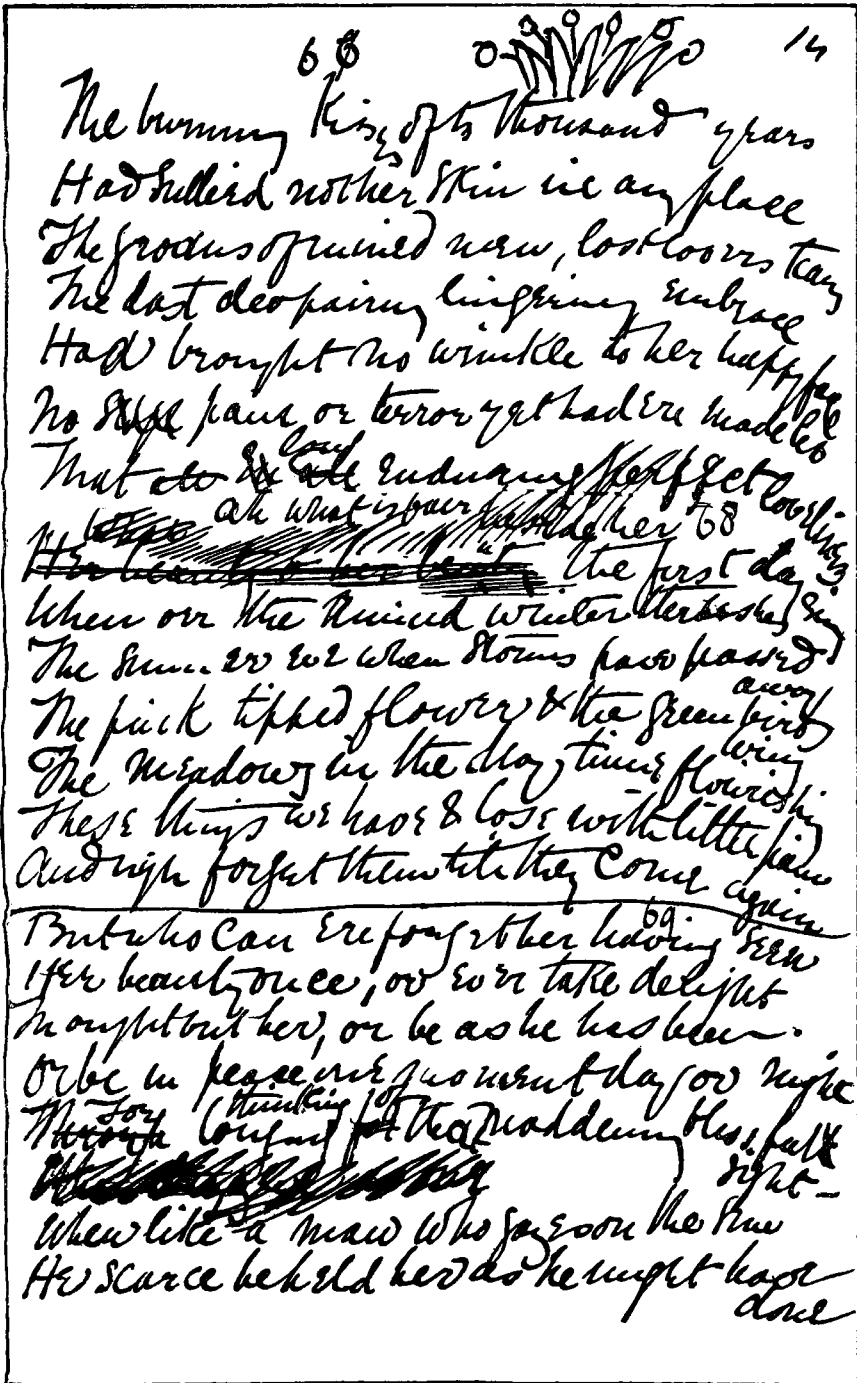 66 14
The burning Kisses of ten thousand years
Had sullied not her skin in any place
The groans of ruined men, lost lovers tears
The last despairing lingering embrace
Had brought no wrinkle to her happy face
No pain or terror yet had ere made less
That long Enduring perfect loveliness.
Ah what is fair beside her 68
the first day
When over the ruined winter thrushes sing
The summer eve when storms have passed away
The pink tipped flower & the green birds wing
The meadows in the May time flourishing
These things we have & lose with little pain
And nigh forget them till they come again
69
But who can ere forget her having seen
Her beauty once, or ever take delight
In ought but her, or be as he has been.
Or be in peace one moment day or night
For thinking of that maddening blissfull sight -
When like a man who gazes on the sun
He scarce beheld her as he might have done